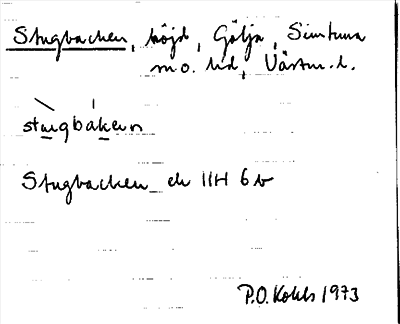 Stugbacken, höjd, Gölja, Simtuna
sn o. hd, Västm. l.
stugbaken
Stugbacken ek 11H 6b
P.O. Kohls 1973